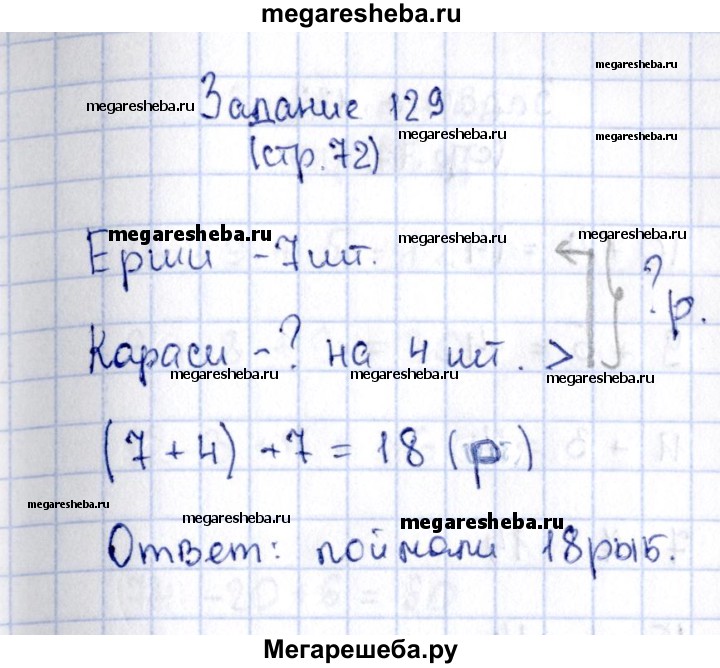 megaresheba.ru
megaresheba.ru
Задание 129
megaresheba.ru
megaresheba.ru
megaresheba.ru
(стр.72)
megaresheba.ru
megaresheba.ru
megaresheba.ru
Ерши - 7 шт.
? р.
Караси - ? на 4 шт. >
megaresheba.ru
megaresheba.ru
megaresheba.ru
(7 + 4) + 7 = 18 (р)
megaresheba.ru
megaresheba.ru
megaresheba.ru
Ответ: поймали 18 рыб.
megaresheba.ru
megaresheba.ru
Мегарешеба.ру